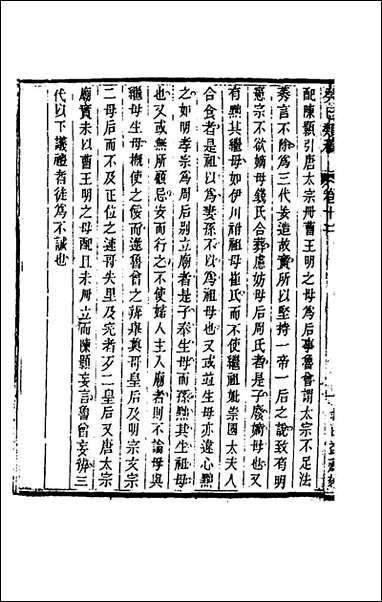 癸巳類稾 卷十二
配陳顥引唐太宗毋曹王明之母爲后事魯曾謂太宗不足法
奏言不除爲三代妄造故實所以堅持一帝一后之說致有明
憲宗不欲嫡母錢氏合葬慮妨母后周氏者是子廢嫡母也又
有黜其繼母如伊川祔祖母崔氏而不使繼祖妣崇國太夫人
合食者是祖以爲妻孫不以爲祖母也又或並生母亦違心黜
之如明孝宗爲周后别立廟者是子奉生母而孫黜其生祖母
也又或無所顧忌妄而行之不使婼人主入廟者則不論母與
繼母生母槪使之餒而遂魯曾之辨雍眞哥皇后及明宗文宗
二母后而不及正位之速哥失里及完者歹二皇后又唐太宗
廟實未以曹王明之母配且未册立而陳顥妄言魯曾妄辨三
代以下議禮者徒爲不誠也